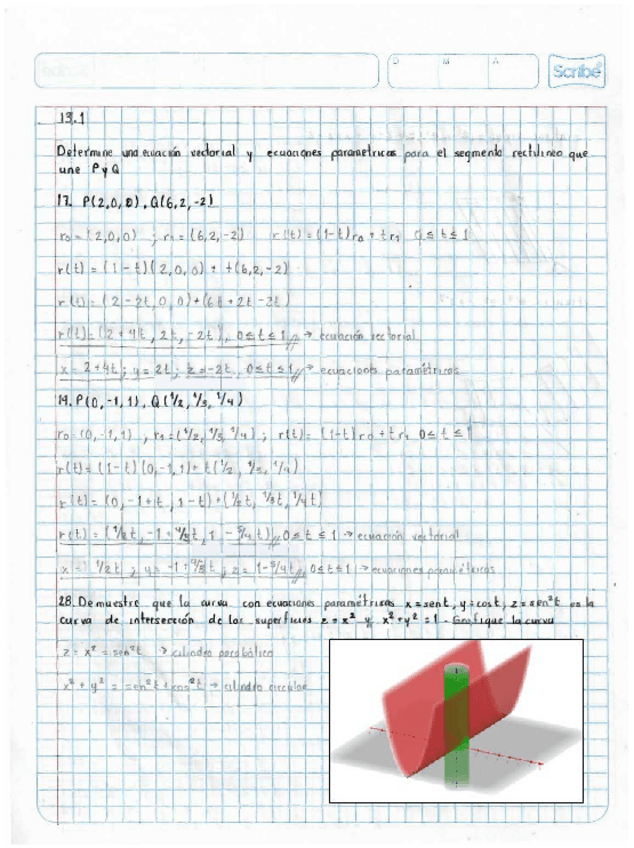 D M A
Scribe
13.1
Determine una ecuación vectorial y ecuaciones parametricas para el segmento rectilineo que
une P y Q
17. P(2,0,0), Q(6,2,-2)
r₀ = (2,0,0) ; r₁ = (6,2,-2) r(t) = (1-t)r₀ + tr₁ 0 ≤ t ≤ 1
r(t) = (1-t)(2,0,0) + t(6,2,-2)
r(t) = (2-2t,0,0)+(6t+2t-2t)
r(t) = (2+4t, 2t, -2t), 0≤t≤1 // → ecuación vectorial
x = 2+4t; y = 2t; z = -2t, 0≤t≤1 // → ecuaciones paramétricas
19. P(0,-1,1), Q(1/2, 1/3, 1/4)
r₀ = (0,-1,1) , r₁ = (1/2, 1/3, 1/4) ; r(t) = (1-t)r₀ + tr₁ 0≤t≤1
r(t) = (1-t)(0,-1,1)+t(1/2, 1/3, 1/4)
r(t) = (0,-1+t, 1-t)+(1/2t, 1/3t, 1/4t)
r(t) = (1/2t, -1+4/3t, 1-3/4t) // 0≤t≤1 → ecuación vectorial
x = 1/2t ; y = -1+4/3t ; z = 1-3/4t // 0≤t≤1 → ecuaciones paramétricas
28. Demuestre que la curva con ecuaciones paramétricas x = sent, y = cost, z = sen²t es la
curva de intersección de las superficies z = x² y x²+y² = 1. Grafique la curva
z = x² = sen²t → cilindro parabólico
x² + y² = sen²t + cos²t → cilindro circular